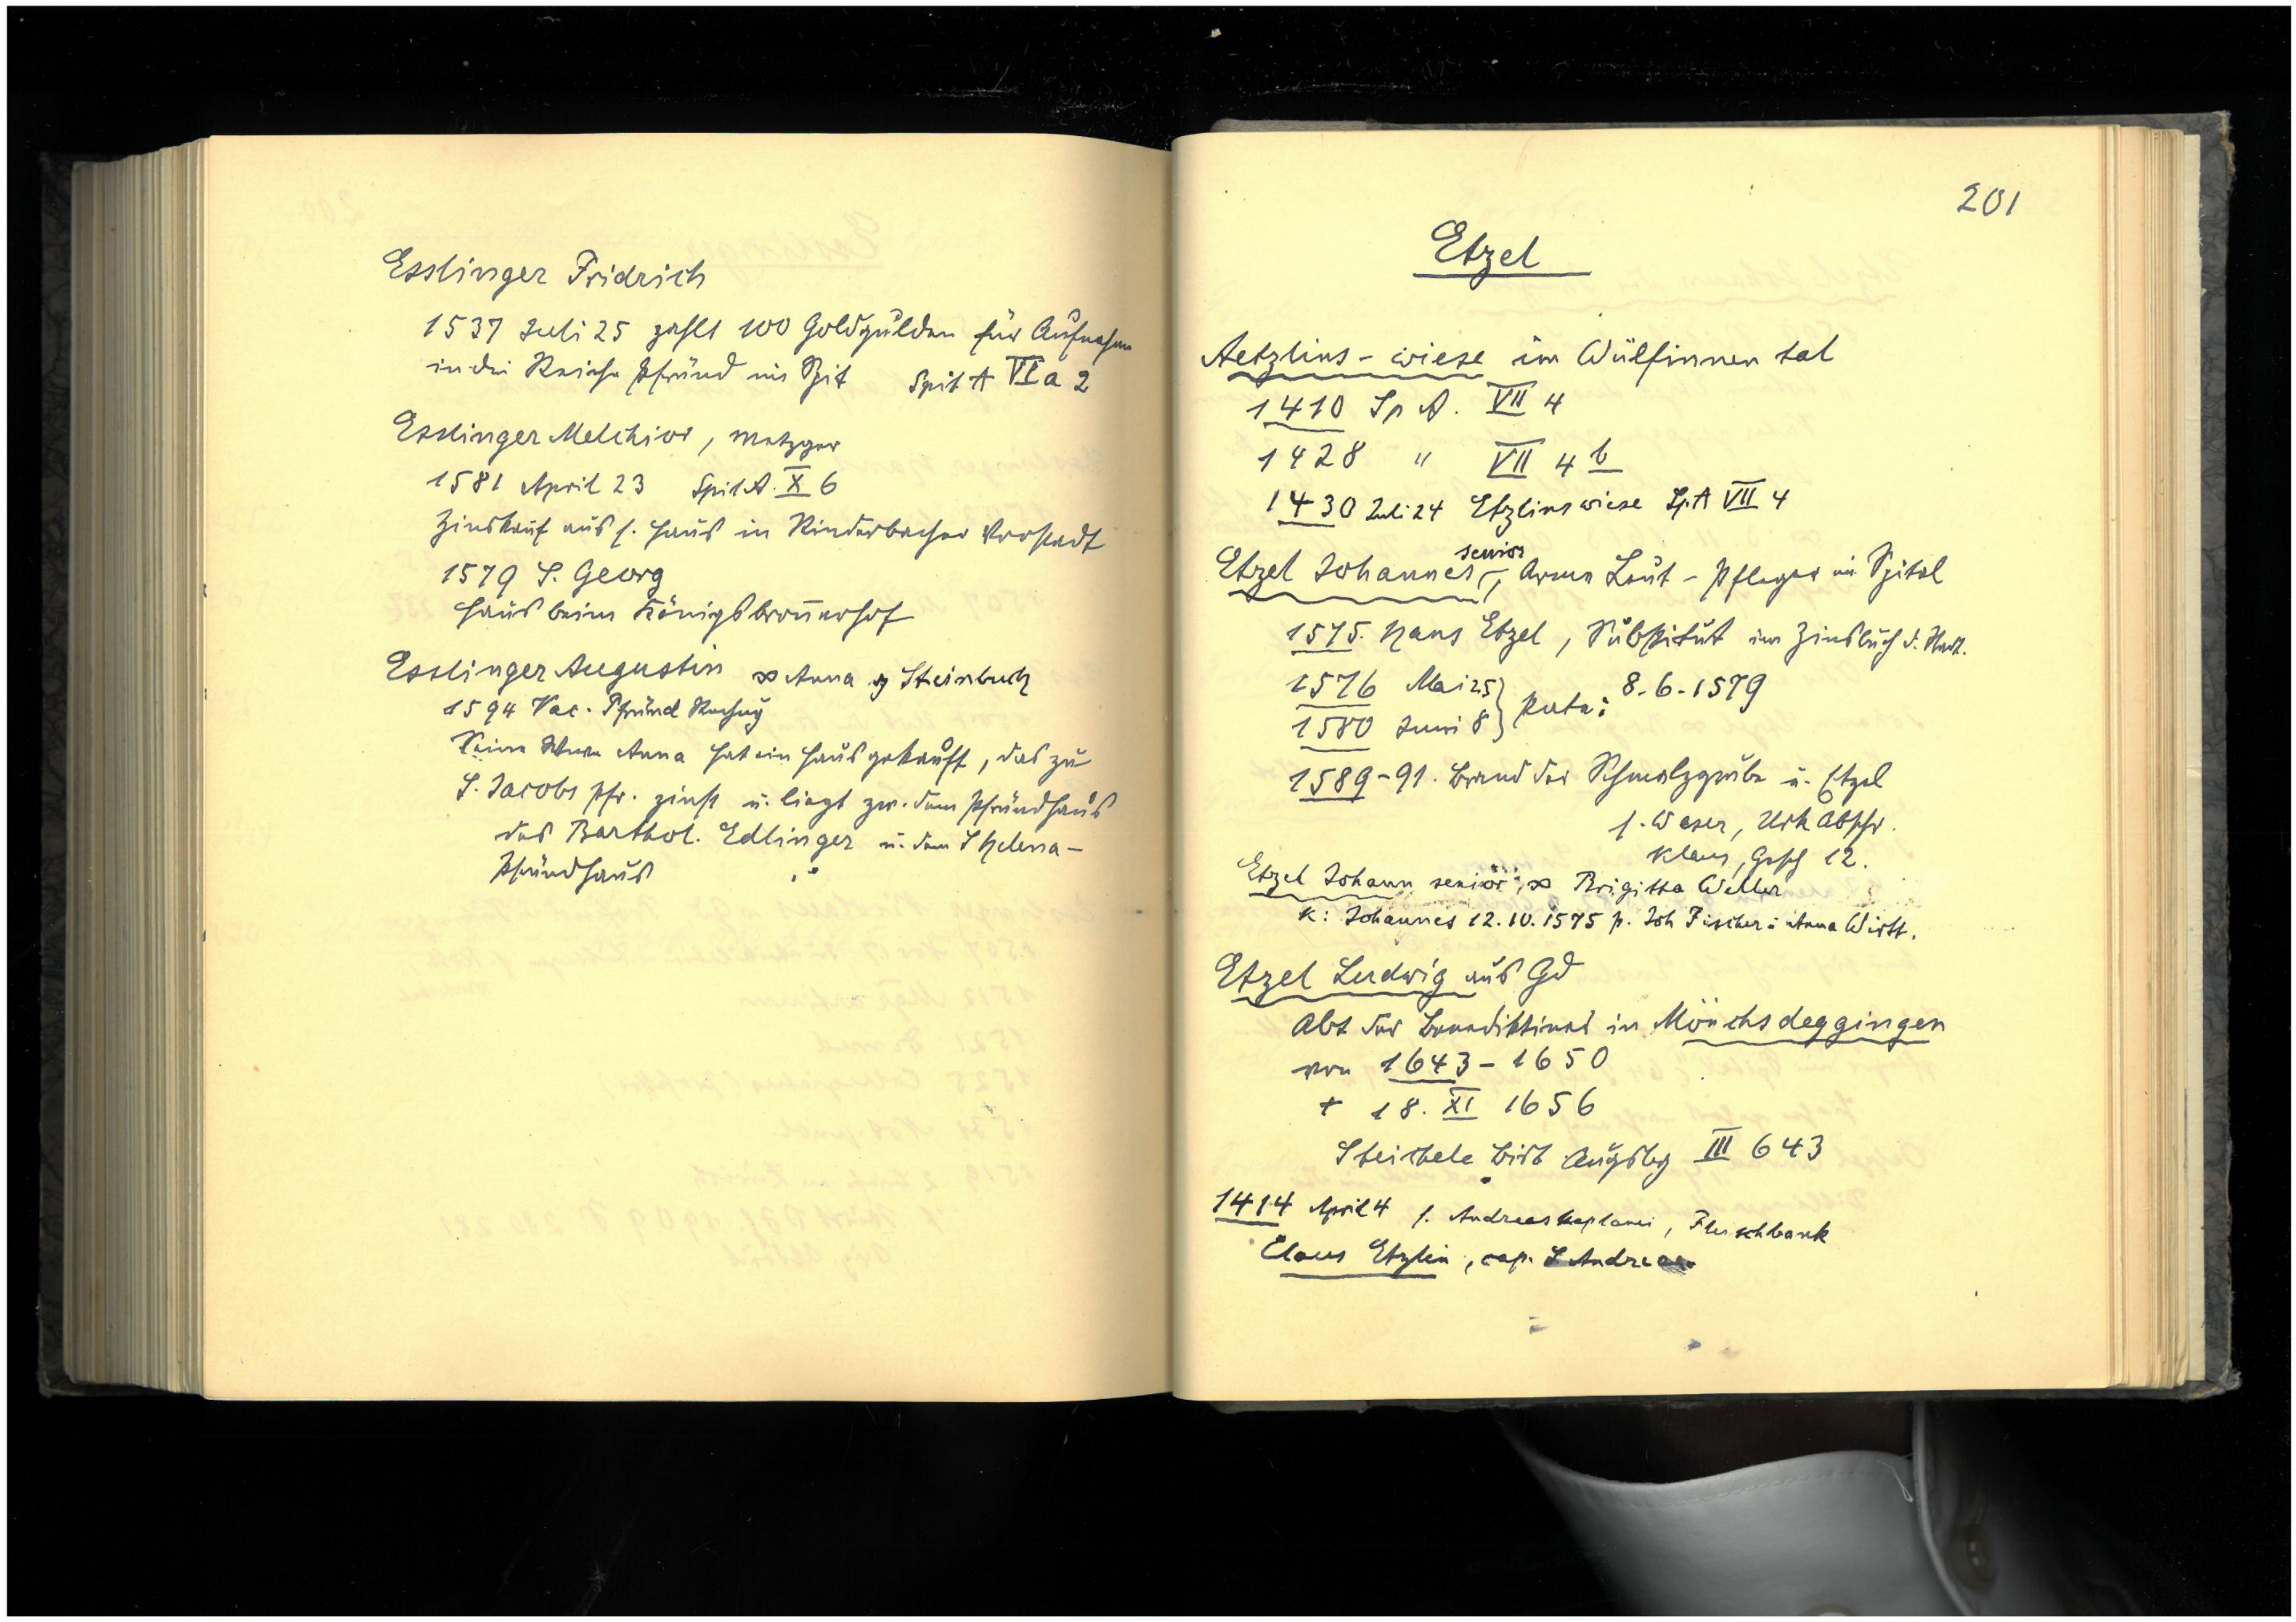 Esslinger Fridrich
1537 Juli 25 zahlt 100 Goldgulden für Aufnahme
in die Reiche Pfründ im Spit Spit A VI a 2
Esslinger Melchior, Metzger
1581 April 23 Spit A. X 6
Zinskauf aus s. Haus in Rinderbacher Vorstadt
1579 S. Georg
Haus beim Königsbronnerhof
Esslinger Augustin ∞ Anna Steinbuch
1594 Vac. Pfründ
Seine Anna hat ein Haus gekauft, das zu
S. Jacobs Pfr. zinst u. liegt zw. dem Pfründhaus
des Barthol. Edlinger u. dem S Helena-
Pfründhaus
201
Etzel
Aetzlins-wiese im Wülfinnen tal
1410 Sp A. VII 4
1428 " VII 4 b
1430 Juli 24 Etzlinswiese Sp. A VII 4
Etzel Johannes senior, Armen Leut-Pfleger im Spital
1575. Hans Etzel, Substitut im Zinsbuch d. Stadt.
1576 Mai 25 } Pate: 8-6-1579
1580 Juni 8
1589-91. Brand der Schmalzgrube u. Etzel
s. Weser, Urk Abschr.
Klaus, Gesch 12.
Etzel Johann senior, ∞ Brigitta Weller
K: Johannes 12.10.1575 p. Joh Fischer: Anna Wirtt.
Etzel Ludwig aus Gd
Abt der Benediktiner in Mönchsdeggingen
von 1643-1650
+ 18. XI 1656
Steichele Bist Augsbg III 643
1414 April 4 s. Andreaskaplanei, Fleischbank
Claus Etzlin, cap. S Andreas